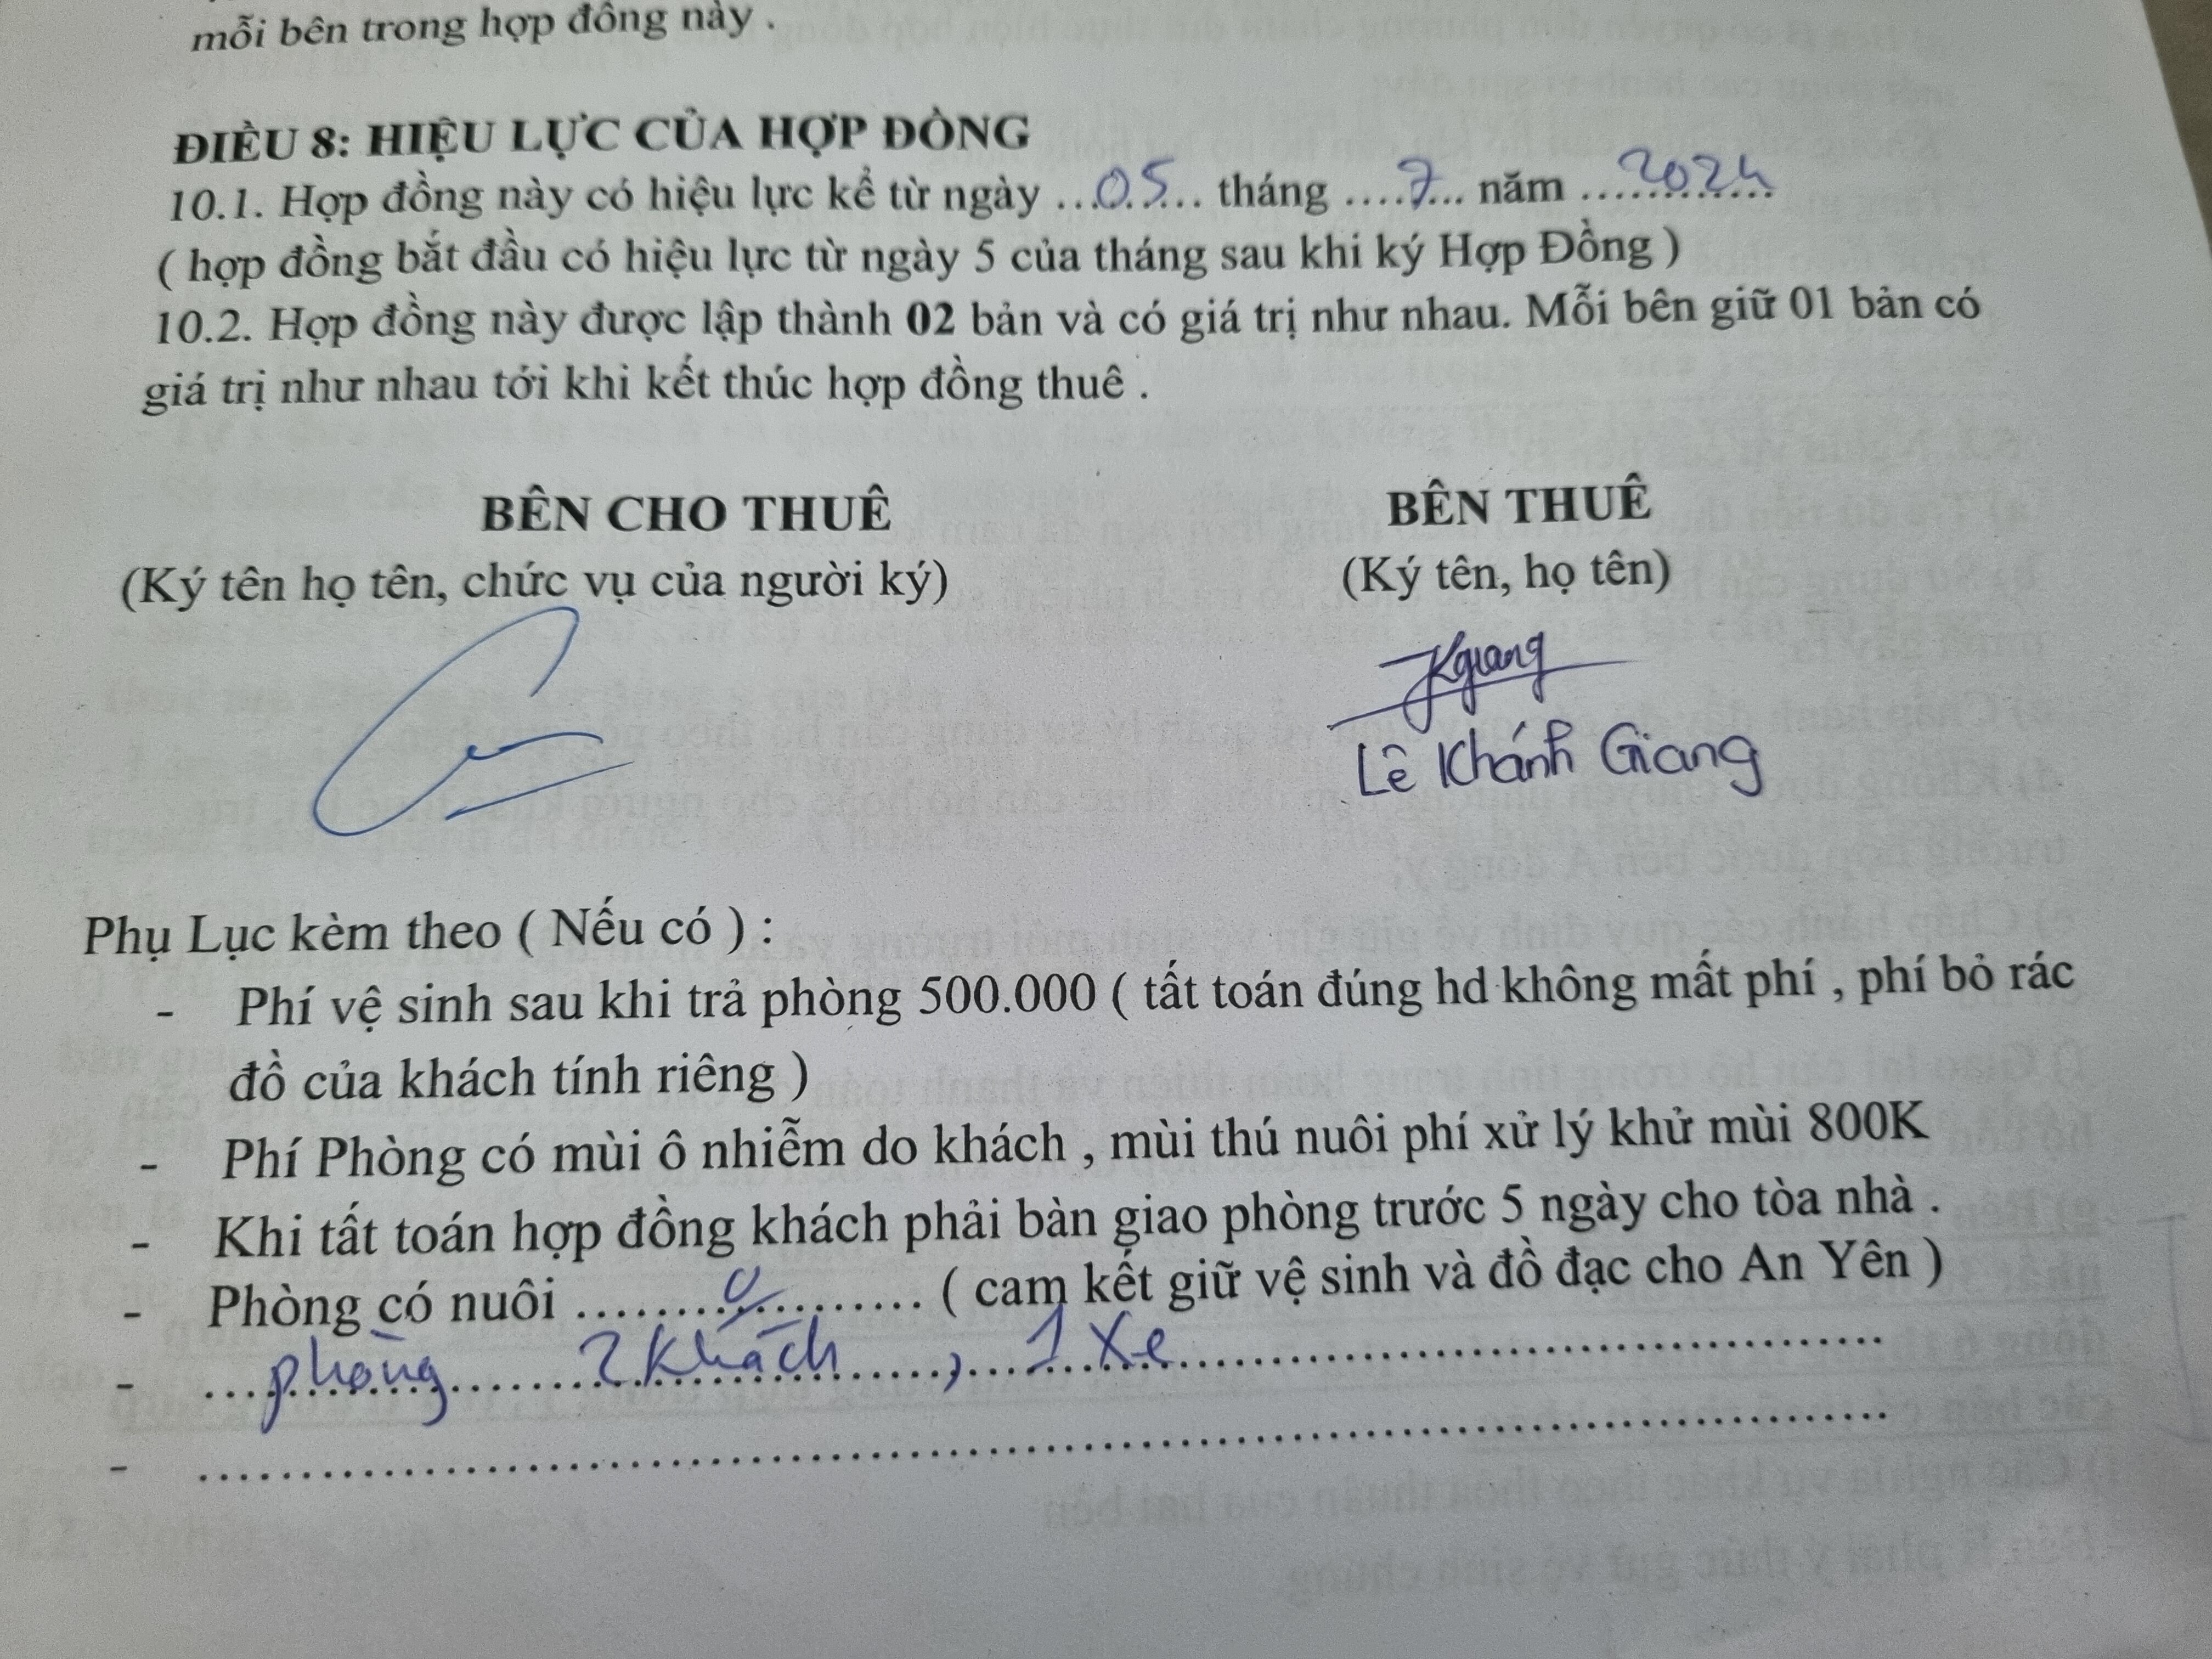 mỗi bên trong hợp đồng này .
ĐIỀU 8: HIỆU LỰC CỦA HỢP ĐỒNG
10.1. Hợp đồng này có hiệu lực kể từ ngày ...05... tháng ....7... năm ....2024....
( hợp đồng bắt đầu có hiệu lực từ ngày 5 của tháng sau khi ký Hợp Đồng )
10.2. Hợp đồng này được lập thành 02 bản và có giá trị như nhau. Mỗi bên giữ 01 bản có
giá trị như nhau tới khi kết thúc hợp đồng thuê .
BÊN CHO THUÊ
(Ký tên họ tên, chức vụ của người ký)
BÊN THUÊ
(Ký tên, họ tên)
Kgiang
Lê Khánh Giang
Phụ Lục kèm theo ( Nếu có ) :
- Phí vệ sinh sau khi trả phòng 500.000 ( tất toán đúng hd không mất phí , phí bỏ rác
đồ của khách tính riêng )
- Phí Phòng có mùi ô nhiễm do khách , mùi thú nuôi phí xử lý khử mùi 800K
- Khi tất toán hợp đồng khách phải bàn giao phòng trước 5 ngày cho tòa nhà .
- Phòng có nuôi ........0......... ( cam kết giữ vệ sinh và đồ đạc cho An Yên )
- ...phòng.......2 khách....,....1 xe..............................
- ..........................................................................